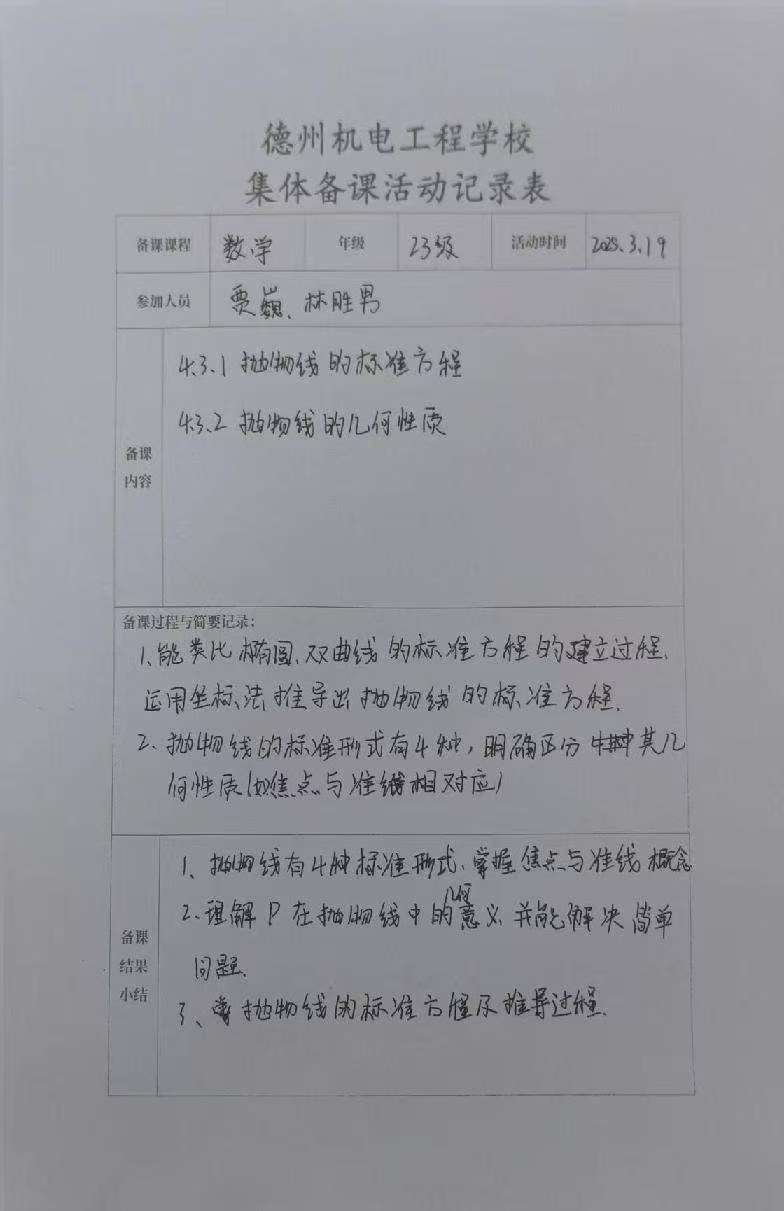 德州机电工程学校
集体备课活动记录表
备课课程 数学 年级 23级 活动时间 2025.3.19
参加人员 贾巍、林胜男
4.3.1 抛物线的标准方程
4.3.2 抛物线的几何性质
备课
内容
备课过程与简要记录:
1、能类比椭圆、双曲线的标准方程的建立过程,
运用坐标法推导出抛物线的标准方程.
2、抛物线的标准形式有4种,明确区分 其几
何性质(如焦点与准线相对应)
1、抛物线有4种标准形式、掌握焦点与准线概念
2、理解P在抛物线中的几何意义并能解决简单
问题.
3、抛物线的标准方程及推导过程.
备课
结果
小结